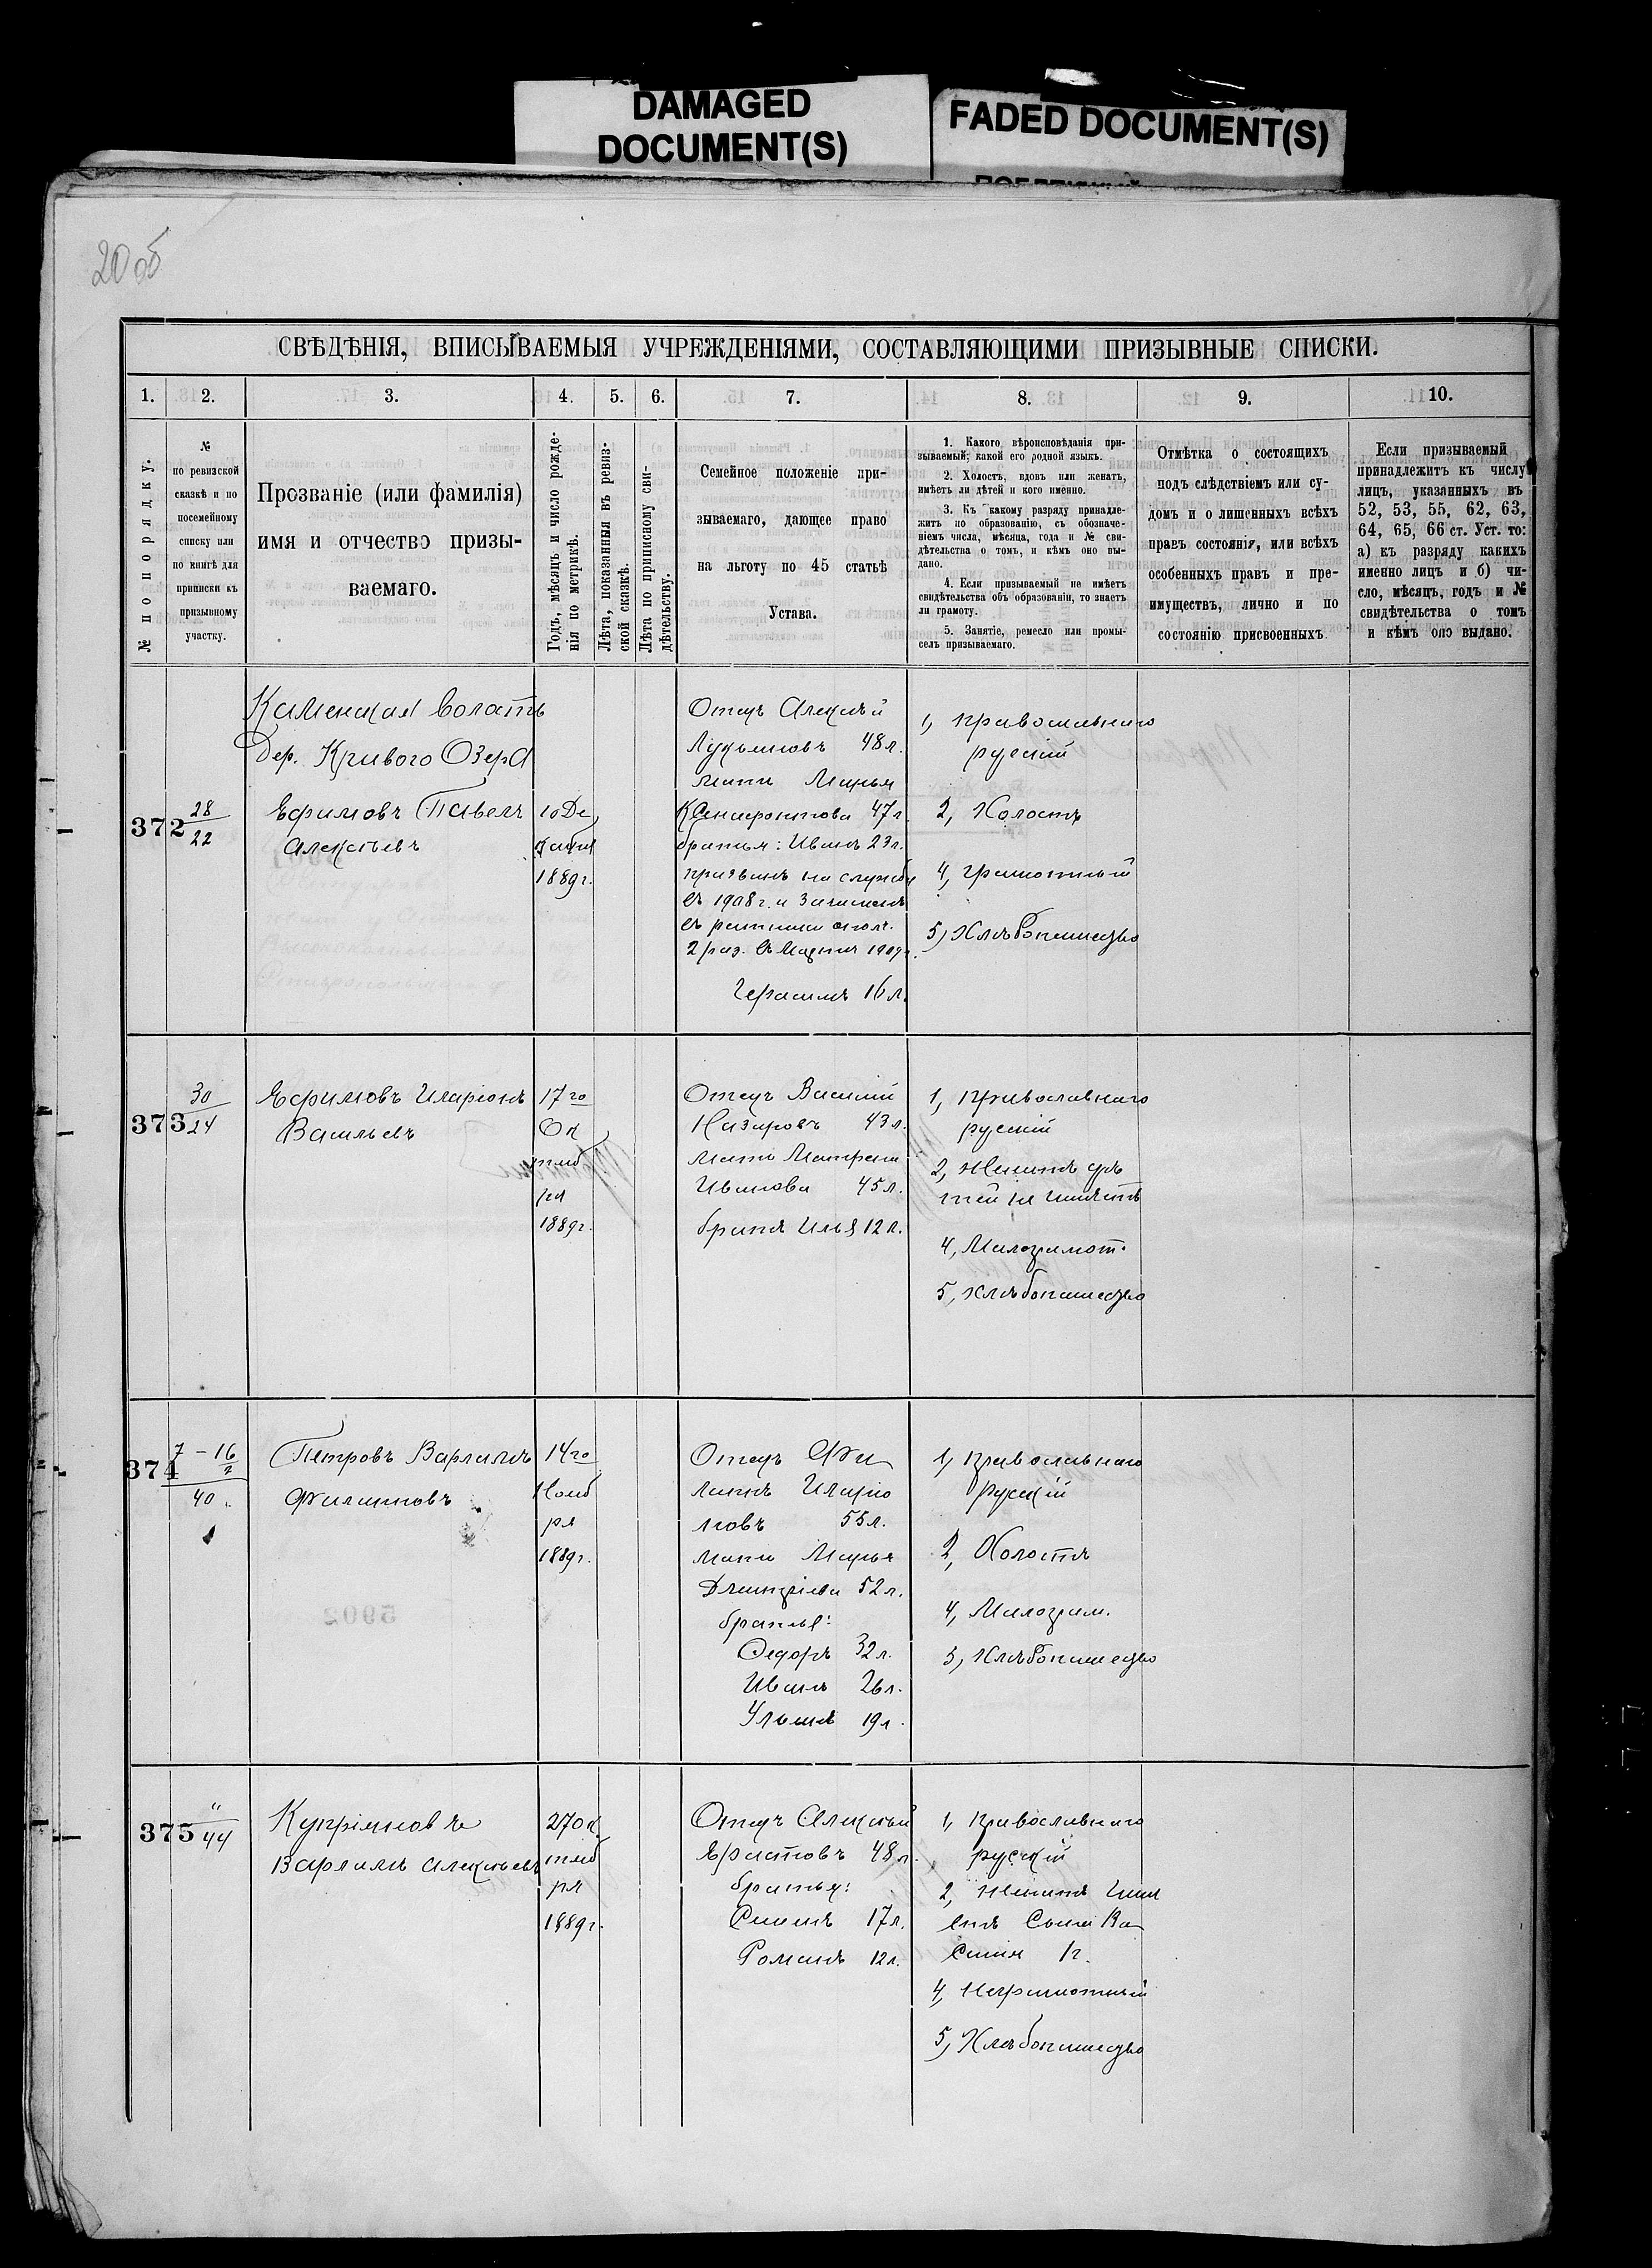 DAMAGED
DOCUMENT(S)
FADED DOCUMENT(S)
20 об
СВѢДѢНІЯ, ВПИСЫВАЕМЫЯ УЧРЕЖДЕНІЯМИ, СОСТАВЛЯЮЩИМИ ПРИЗЫВНЫЕ СПИСКИ.
1. 2. 3. 4. 5. 6. 7. 8. 9. 10.
№ по порядку.
№
по ревизской
сказкѣ и по
посемейному
списку или
по книгѣ для
приписки къ
призывному
участку.
Прозваніе (или фамилія)
имя и отчество призы-
ваемаго.
Годъ, мѣсяцъ и число рожде-
нія по метрикѣ.
Лѣта, показанныя въ ревиз-
ской сказкѣ.
Лѣта по приписному сви-
дѣтельству.
Семейное положеніе при-
зываемаго, дающее право
на льготу по 45 статьѣ
Устава.
1. Какого вѣроисповѣданія при-
зываемый; какой его родной языкъ.
2. Холостъ, вдовъ или женатъ,
имѣетъ ли дѣтей и кого именно.
3. Къ какому разряду принадле-
житъ по образованію, съ обозначе-
ніемъ числа, мѣсяца, года и № сви-
дѣтельства о томъ, и кѣмъ оно вы-
дано.
4. Если призываемый не имѣетъ
свидѣтельства объ образованіи, то знаетъ
ли грамоту.
5. Занятіе, ремесло или промы-
селъ призываемаго.
Отмѣтка о состоящихъ
подъ слѣдствіемъ или су-
домъ и о лишенныхъ всѣхъ
правъ состоянія, или всѣхъ
особенныхъ правъ и пре-
имуществъ, лично и по
состоянію присвоенныхъ.
Если призываемый
принадлежитъ къ числу
лицъ, указанныхъ въ
52, 53, 55, 62, 63,
64, 65, 66 ст. Уст. то:
а) къ разряду какихъ
именно лицъ и б) чи-
сло, мѣсяцъ, годъ и №
свидѣтельства о томъ
и кѣмъ оно выдано.
Каменская волость
Дер. Кривого Озера
372
28
22
Ефимовъ Павелъ
Алексѣевъ
10 Де
кабря
1889 г.
Отецъ Алексѣй
Лукьяновъ 48 л.
мать Марья
Ксенофонтова 47 л.
братья: Иванъ 23 л.
призванъ на службу
въ 1908 г. и зачисленъ
въ ратники опол.
2 раз. въ Мартѣ 1909 г.
Герасимъ 16 л.
1, православнаго
русскій
2, Холостъ
4, грамотный
5, Хлѣбопашество
373
30
24
Ефимовъ Иларіонъ
Васильевъ
17го
Ок
тяб
ря
1889 г.
Отецъ Василій
Назаровъ 43 л.
мать Матрена
Иванова 45 л.
братъ Илья 12 л.
1, православнаго
русскій
2, Женатъ дѣ
тей не имѣетъ
4, Малограмот.
5, хлѣбопашество
374
7 – 16
2
40
Петровъ Варламъ
Филипповъ
14го
Нояб
ря
1889 г.
Отецъ Фи
липпъ Иларіо
новъ 55 л.
мать Марья
Дмитріева 52 л.
братья:
Федоръ 32 л.
Иванъ 26 л.
Ульянъ 19 л.
1, православнаго
русскій
2, Холостъ
4, Малограм.
5, Хлѣбопашество
5902
375
"
44
Купріяновъ
Варламъ Алексѣевъ
27 Ок
тяб
ря
1889 г.
Отецъ Алексѣй
Ерастовъ 48 л.
братья:
Семенъ 17 л.
Романъ 12 л.
1, православнаго
русскій
2, Женатъ имѣ
етъ сына Ва
силія 1 г.
4, Неграмотный
5, Хлѣбопашество